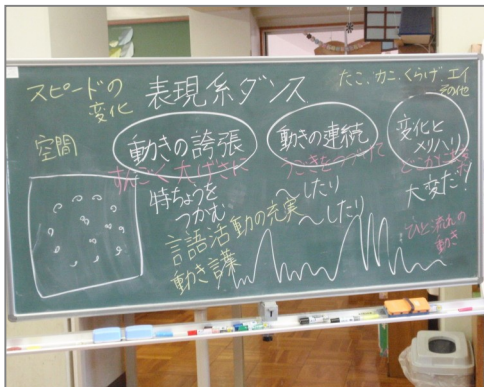 スピードの
変化
表現系ダンス
たこ、カニ、くらげ、エイ
その他
空間
動きの誇張
動きの連続
変化と
メリハリ
すんごく大げさに
うごきをつづけて
特ちょうを
つかむ
〜したり
〜したり
大変だ!
言語活動の充実
動き言葉
ひと流れの
動き